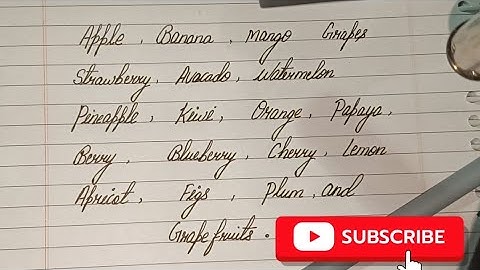 Apple, Banana, mango Grapes
Strawberry, Avacado, Watermelon
Pineapple, Kiwi, Orange, Papaya,
Berry, Blueberry, Cherry, Lemon
Apricot, Figs, Plum, and
Grapefruits.
SUBSCRIBE